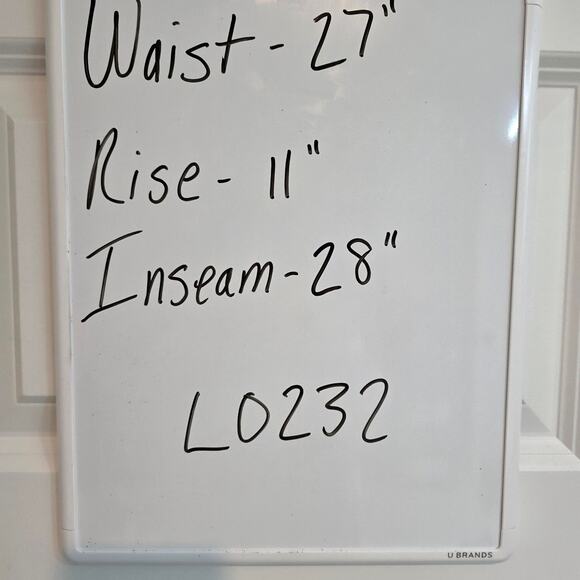 Waist - 27"
Rise - 11"
Inseam - 28"
L0232
U BRANDS